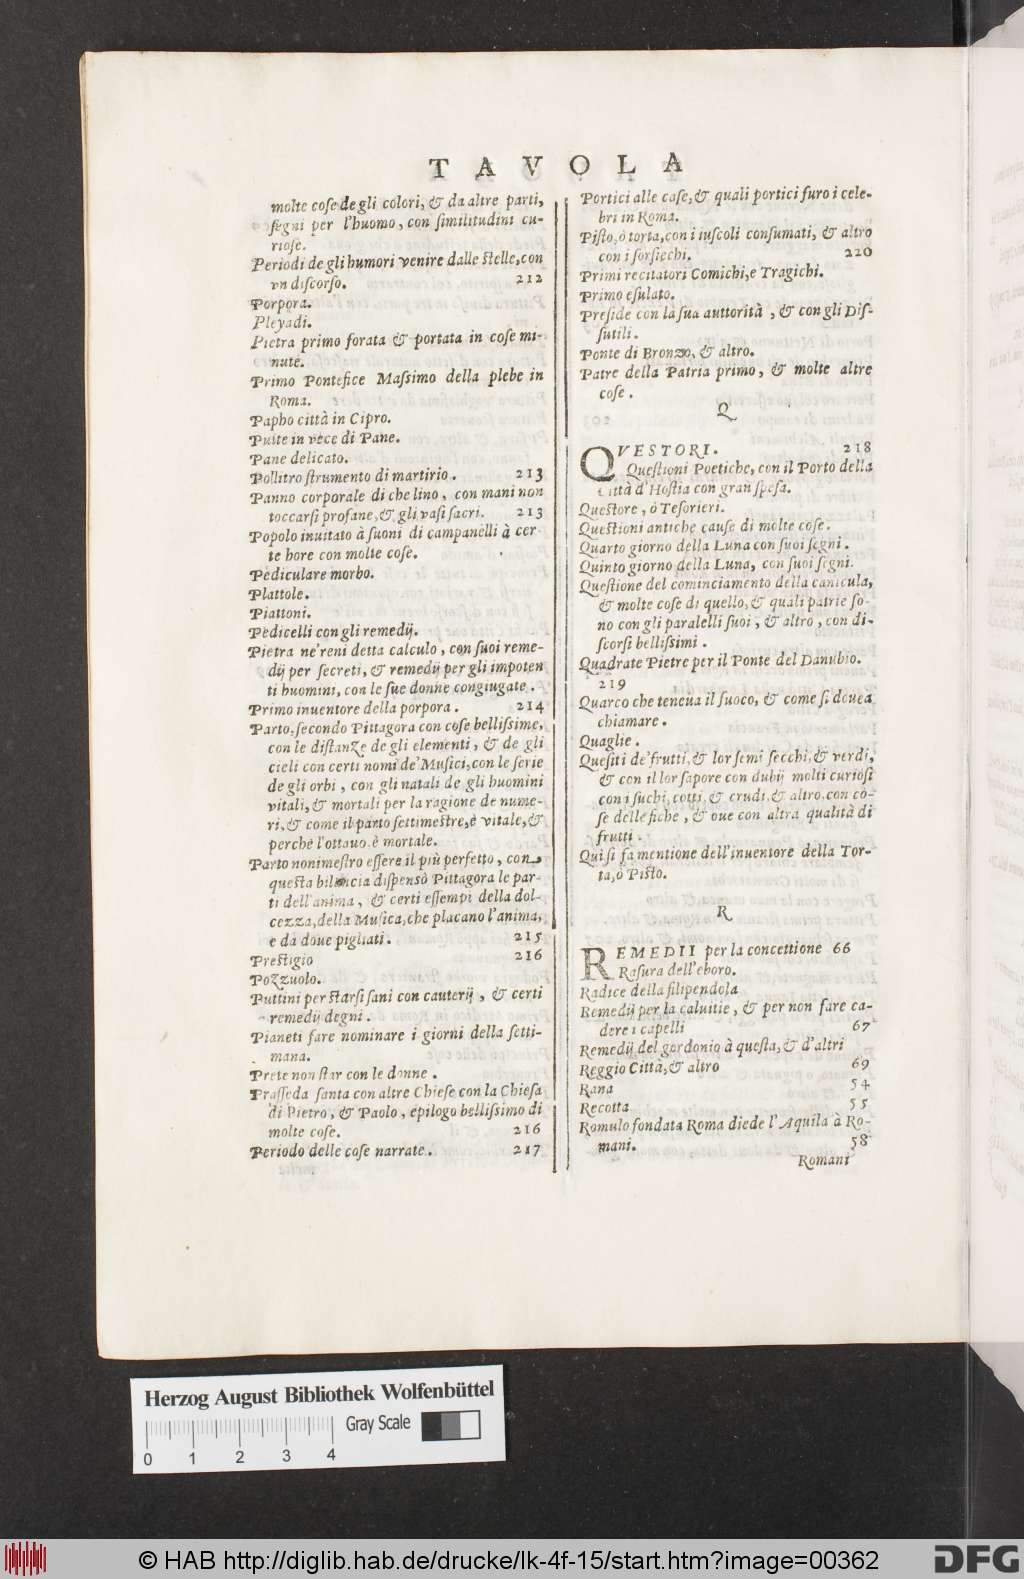 TAVOLA
molte cose de gli colori, & da altre parti,
segni per l'huomo, con similitudini cu-
riose.
Periodi de gli humori venire dalle stelle, con
vn discorso. 212
Porpora.
Pleyadi.
Pietra primo forata & portata in cose mi-
nute.
Primo Pontefice Massimo della plebe in
Roma.
Papho città in Cipro.
Putte in vece di Pane.
Pane delicato.
Pollitro strumento di martirio. 213
Panno corporale di che lino, con mani non
toccarsi profane, & gli vasi sacri. 213
Popolo inuitato à suoni di campanelli à cer
te hore con molte cose.
Pediculare morbo.
Plattole.
Piattoni.
Pedicelli con gli remedij.
Pietra ne'reni detta calculo, con suoi reme-
dij per secreti, & remedij per gli impoten
ti huomini, con le sue donne congiugate.
Primo inuentore della porpora. 214
Parto, secondo Pittagora con cose bellissime,
con le distanze de gli elementi, & de gli
cieli con certi nomi de' Musici, con le serie
de gli orbi, con gli natali de gli huomini
vitali, & mortali per la ragione de nume-
ri, & come il parto settimestre, è vitale, &
perche l'ottauo, è mortale.
Parto nonimestro essere il più perfetto, con
questa bilancia dispensò Pittagora le par-
ti dell'anima, & certi essempi della dol-
cezza, della Musica, che placano l'anima,
e da doue pigliati. 215
Prestigio 216
Pozzuolo.
Puttini per starsi sani con cauterij, & certi
remedij degni.
Pianeti fare nominare i giorni della setti-
mana.
Prete non star con le donne.
Prasseda santa con altre Chiese con la Chiesa
di Pietro, & Paolo, epilogo bellissimo di
molte cose. 216
Periodo delle cose narrate. 217
Portici alle case, & quali portici furo i cele-
bri in Roma.
Pisto, ò torta, con i iuscoli consumati, & altro
con i sorsiechi. 220
Primi recitatori Comichi, e Tragichi.
Primo esulato.
Preside con la sua auttorità, & con gli Dis-
sutili.
Ponte di Bronzo, & altro.
Patre della Patria primo, & molte altre
cose.
Q
QVESTORI. 218
Questioni Poetiche, con il Porto della
Città d'Hostia con gran spesa.
Questore, ò Tesorieri.
Questioni antiche cause di molte cose.
Quarto giorno della Luna con suoi segni.
Quinto giorno della Luna, con suoi segni.
Questione del cominciamento della canicula,
& molte cose di quello, & quali patrie so-
no con gli paralelli suoi, & altro, con di-
scorsi bellissimi.
Quadrate Pietre per il Ponte del Danubio.
219
Quarco che teneua il fuoco, & come si doueα
chiamare.
Quaglie.
Quesiti de'frutti, & lor semi secchi, & verdi,
& con il lor sapore con dubij molti curiosi
con i suchi, cotti, & crudi, & altro, con co-
se delle fiche, & oue con altra qualità di
frutti.
Qui si fa mentione dell'inuentore della Tor-
ta, ò Pisto.
R
REMEDII per la concettione 66
Rasura dell'eboro.
Radice della filipendola
Remedij per la caluitie, & per non fare ca-
dere i capelli 67
Remedij del gordonio à questa, & d'altri
Reggio Città, & altro 69
Rana 54
Recotta 55
Romulo fondata Roma diede l'Aquila à Ro-
mani. 58
Romani
Herzog August Bibliothek Wolfenbüttel
Gray Scale
0 1 2 3 4
© HAB http://diglib.hab.de/drucke/lk-4f-15/start.htm?image=00362
DFG